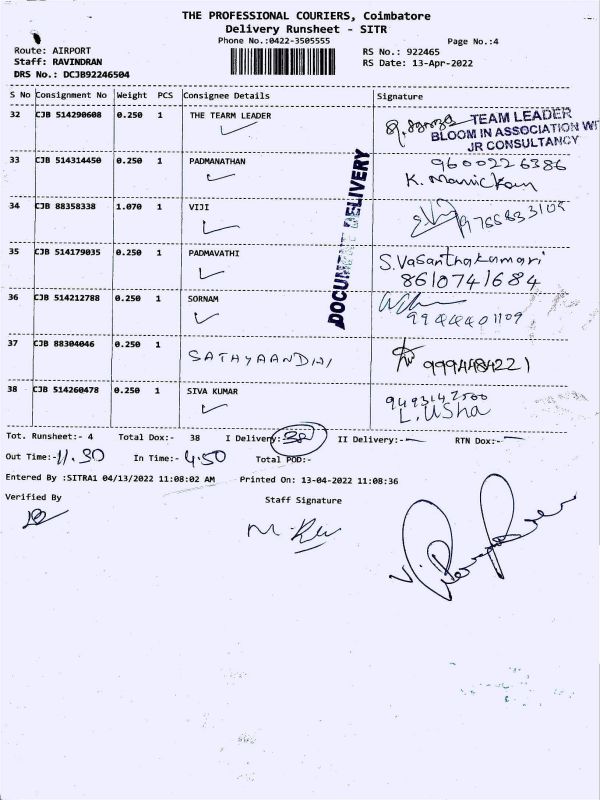 THE PROFESSIONAL COURIERS, Coimbatore
Delivery Runsheet - SITR
Phone No.:0422-3505555 Page No.:4
Route: AIRPORT RS No.: 922465
Staff: RAVINDRAN RS Date: 13-Apr-2022
DRS No.: DCJB92246504
S No Consignment No Weight PCS Consignee Details Signature
32 CJB 514290608 0.250 1 THE TEARM LEADER
TEAM LEADER
BLOOM IN ASSOCIATION WI
JR CONSULTANCY
33 CJB 514314450 0.250 1 PADMANATHAN 9600226386
K. Manickam
DOCUMENT DELIVERY
34 CJB 88358338 1.070 1 VIJI
35 CJB 514179035 0.250 1 PADMAVATHI S. Vasanthakumari
8610741684
36 CJB 514212788 0.250 1 SORNAM
9944401109
37 CJB 88304046 0.250 1 SATHYAANDHI 9994484221
38 CJB 514260478 0.250 1 SIVA KUMAR
L. Usha
Tot. Runsheet:- 4 Total Dox:- 38 I Delivery:- 38 II Delivery:- RTN Dox:-
Out Time:- 11.30 In Time:- 4.50 Total POD:-
Entered By :SITRA1 04/13/2022 11:08:02 AM Printed On: 13-04-2022 11:08:36
Verified By Staff Signature